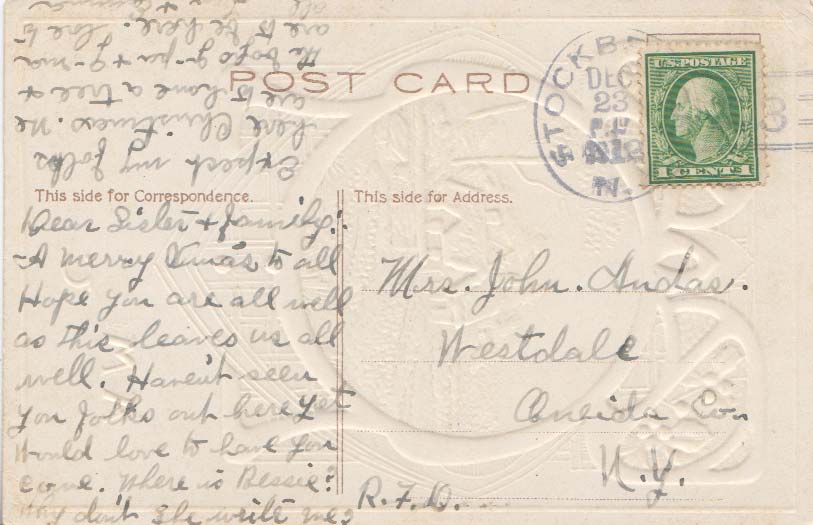 POST CARD
This side for Correspondence.
This side for Address.
STOCKB
DEC
23
N.
U.S. POSTAGE
1 CENT 1
Dear Sister & family:
A merry Xmas to all
Hope you are all well
as this leaves us all
well. Haven't seen
you folks out here yet
Would love to have you
come. Where is Bessie?
Why don't she write me?
Expect my folks
here Christmas. We
are to have a tree &
the g-pa & g-ma
are to be here. love to
all
Mrs. John. Andas.
Westdale
Oneida Co.
N.Y.
R.F.D.